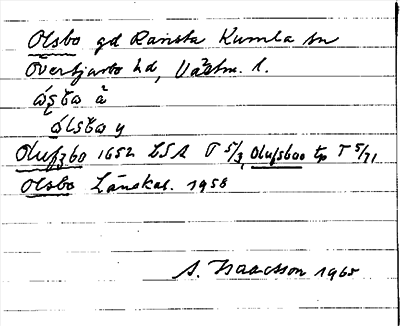 Olsbo gd Ransta Kumla sn
Övertjurbo hd, Västm. l.
å
y
Olufzbo 1652 LSA T 5/3, Olufsboo tp T 5/71
Olsbo Länskal. 1958
A. Isaacsson 1965